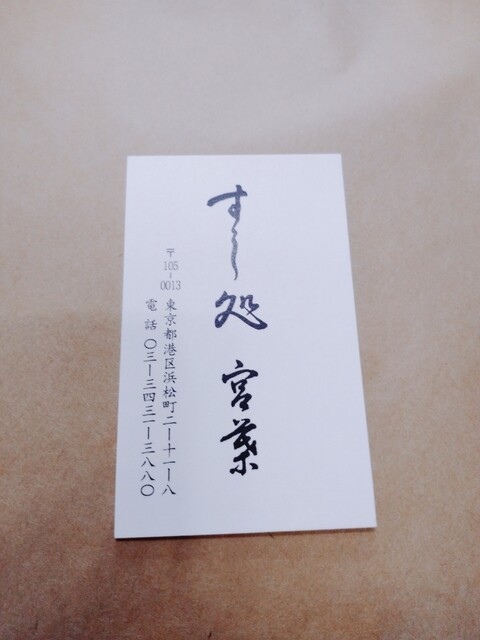 すし処 宮葉
〒105-0013
東京都港区浜松町二ー十一ー八
電話 〇三ー三四三一ー三八八〇